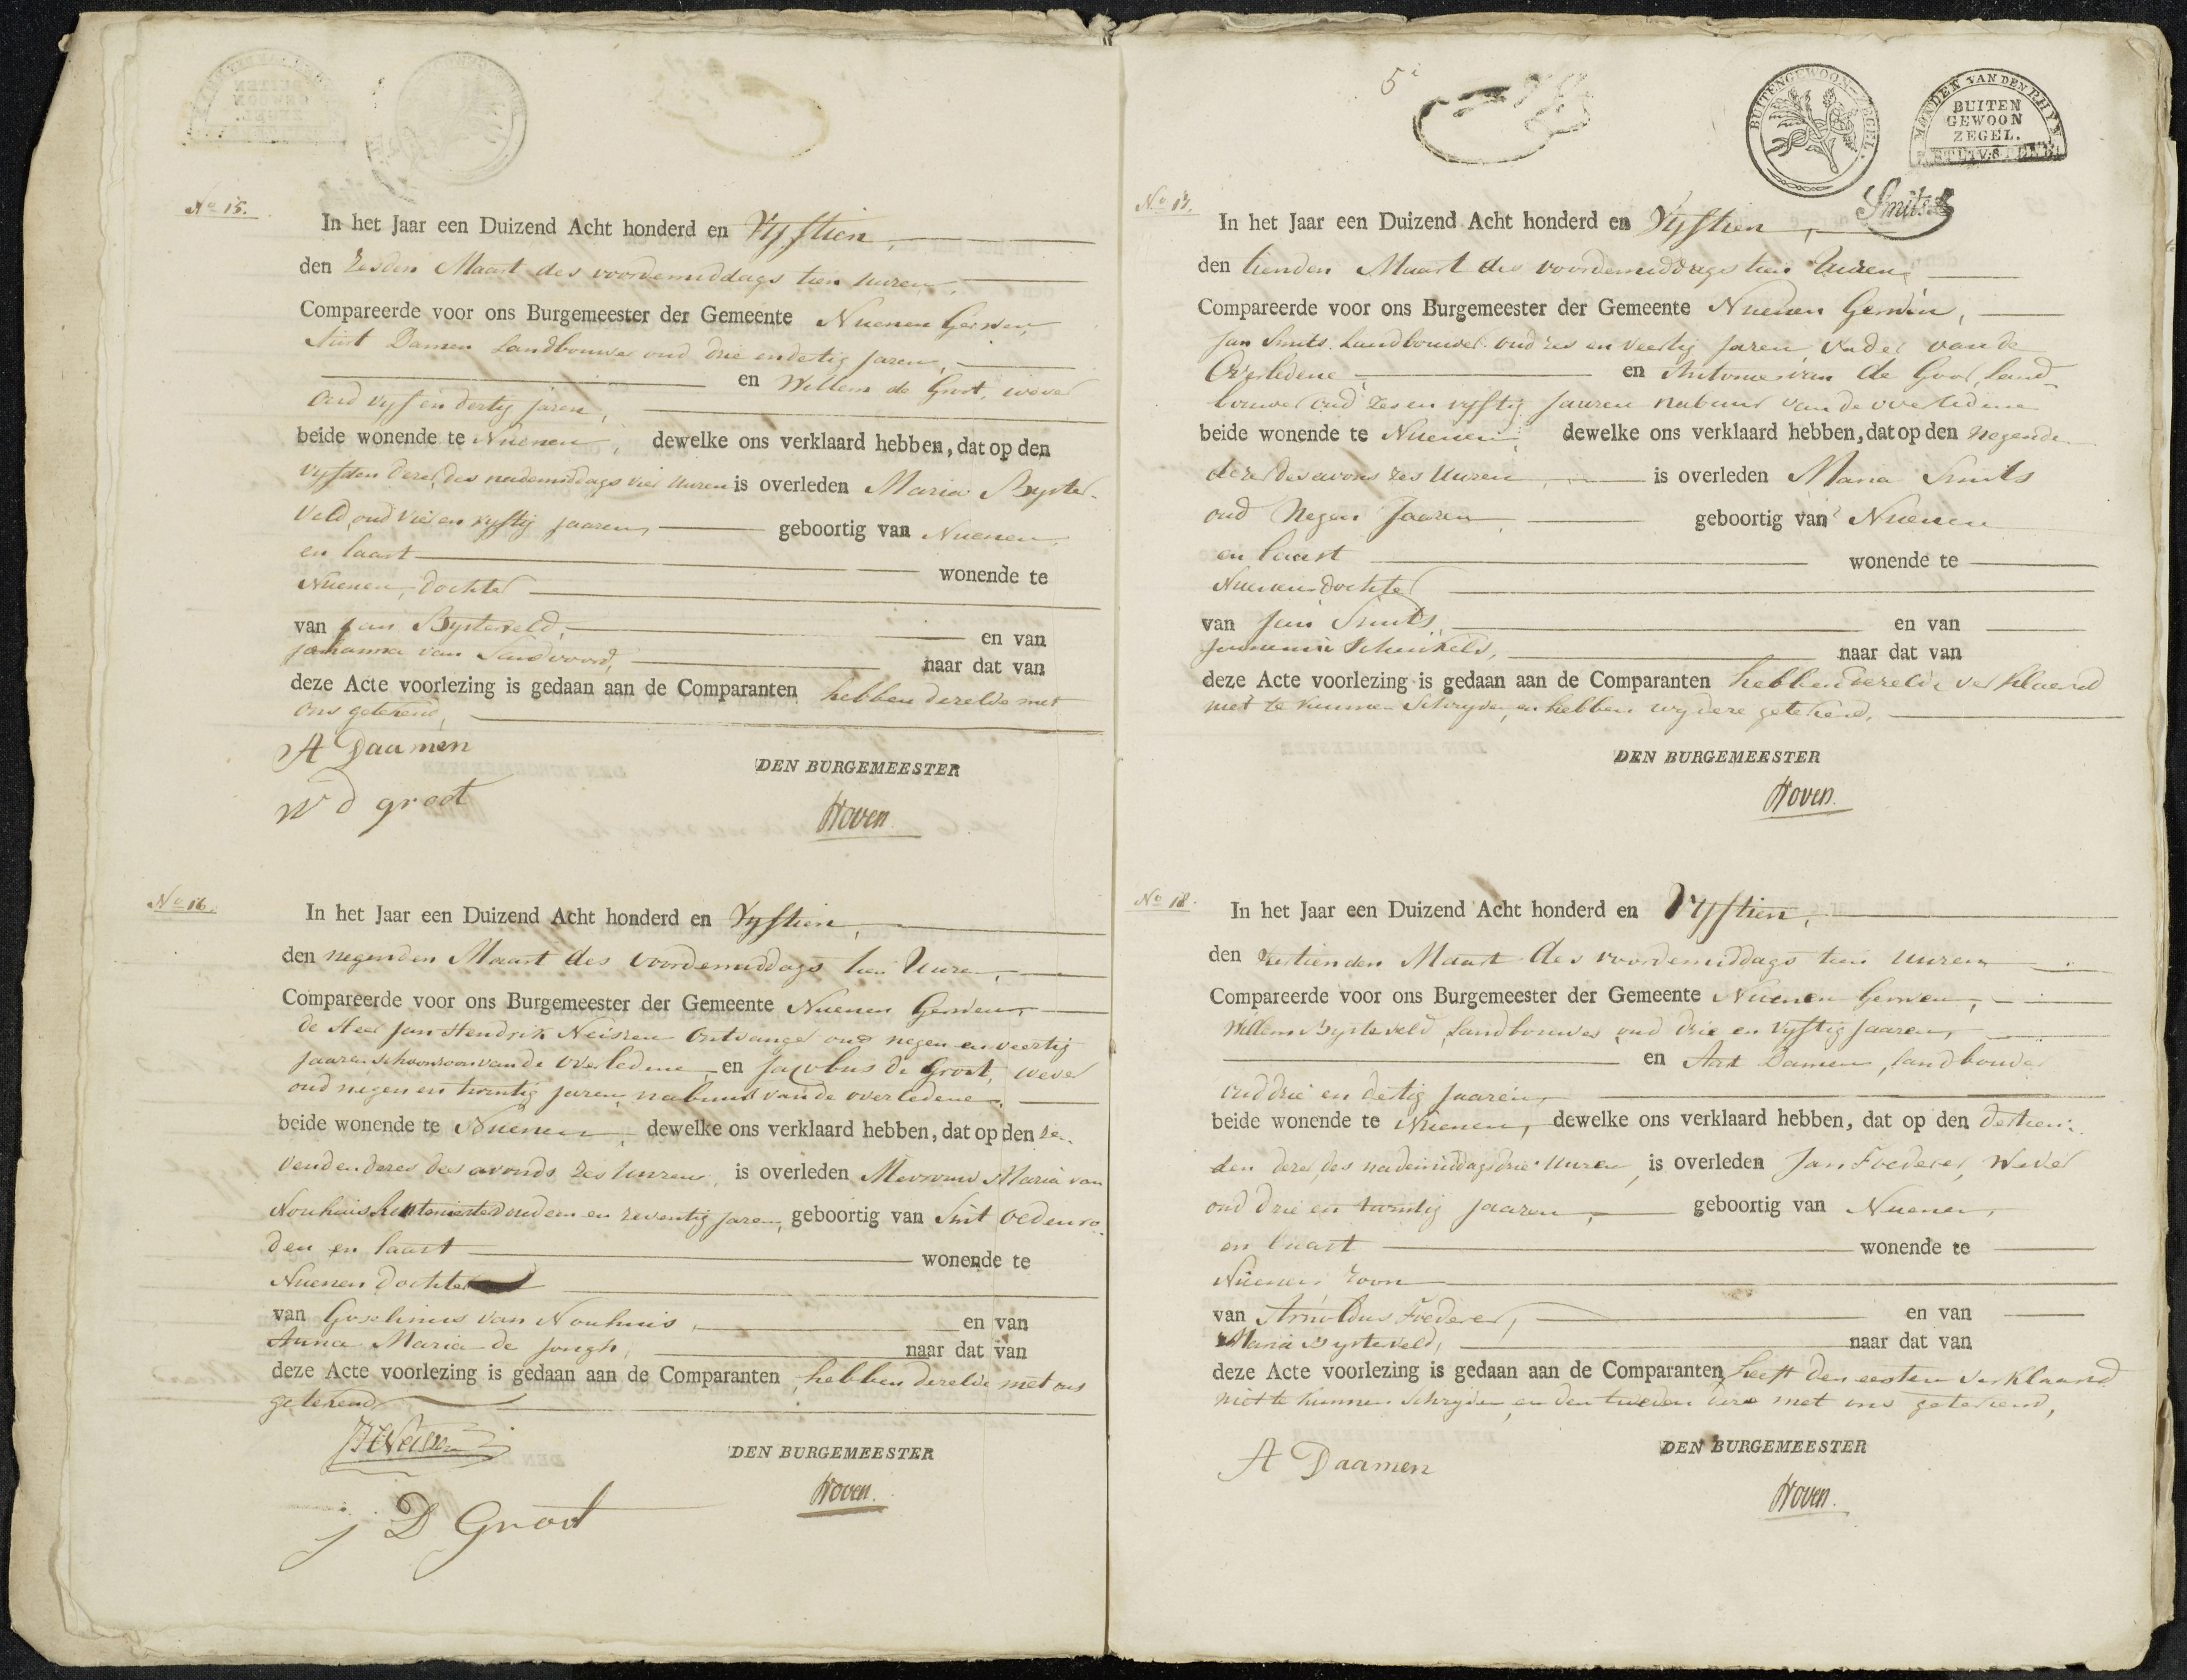 No 15.
In het Jaar een Duizend Acht honderd en Vyftien,
den zesden Maart des voordemiddags tien uuren,
Compareerde voor ons Burgemeester der Gemeente Nuenen Gerwen,
Damen Landbouwer oud drie endertig jaren,
en Willem de Groot, wever
oud vyf en dertig jaren,
beide wonende te Nuenen, dewelke ons verklaard hebben, dat op den
vyfden dezer, des nademiddags vier uuren is overleden Maria Byster-
veld, oud vier en vyftig jaaren, geboortig van Nuenen,
en laast wonende te
Nuenen, dochter
van Jan Bysterveld, en van
Johanna van Sandvoord, naar dat van
deze Acte voorlezing is gedaan aan de Comparanten hebben dezelve met
ons getekend,
A Daamen
DEN BURGEMEESTER
W d groot
Hoven.
No 16.
In het Jaar een Duizend Acht honderd en Vyftien,
den negenden Maart des voordemiddags tien Uuren,
Compareerde voor ons Burgemeester der Gemeente Nuenen Gerwen,
de Heer Jan Hendrik Neissen Ontvanger oud negen en veertig
jaaren schoonzoon van de overledene, en Jacobus de Groot, wever
oud negen en twintig jaren, nabuur van de overledene,
beide wonende te Nuenen, dewelke ons verklaard hebben, dat op den ze-
venden dezer des avonds zes Uuren, is overleden Mevrouw Maria van
Nouhuis oud een en zeventig jaren, geboortig van Sint Oedenro-
den en laast wonende te
Nuenen dochter
van Goselinus van Nouhuis, en van
Anna Maria de Jongh, naar dat van
deze Acte voorlezing is gedaan aan de Comparanten, hebben dezelve met ons
getekend,
JHNeissen
DEN BURGEMEESTER
Hoven.
j D Groot
5e
BUITENGEWOON ZEGEL.
MONDEN VAN DEN RHYN
BUITEN
GEWOON
ZEGEL.
Smits
No 17.
In het Jaar een Duizend Acht honderd en Vyftien,
den tienden Maart des voordemiddags tien Uuren,
Compareerde voor ons Burgemeester der Gemeente Nuenen Gerwen,
Jan Smits Landbouwer oud zes en veertig jaren, vader van de
Overledene, en Antonie van de Goor, land-
bouwer oud zes en vyftig jaaren nabuur van de overledene
beide wonende te Nuenen, dewelke ons verklaard hebben, dat op den negende
dezer des avons zes Uuren, is overleden Maria Smits
oud Negen Jaaren, geboortig van Nuenen
en laast wonende te
Nuenen dochter
van Jan Smits, en van
Schenkels, naar dat van
deze Acte voorlezing is gedaan aan de Comparanten hebben dezelve verklaard
niet te kunnen Schryven, en hebben wy deze getekend,
DEN BURGEMEESTER
Hoven.
No 18.
In het Jaar een Duizend Acht honderd en Vyftien,
den Maart des voordemiddags tien uuren
Compareerde voor ons Burgemeester der Gemeente Nuenen Gerwen,
Willem Bysterveld, Landbouwer, oud drie en vyftig jaaren,
en Aart Damen, landbouwer
oud drie en dertig jaaren,
beide wonende te Nuenen, dewelke ons verklaard hebben, dat op den dertien-
den dezer, des nademiddags drie Uuren, is overleden Jan Foederer, Wever
oud drie en twintig jaaren, geboortig van Nuenen,
en laast wonende te
Nuenen zoon
van Arnoldus Foederer, en van
Maria Bysterveld, naar dat van
deze Acte voorlezing is gedaan aan de Comparanten heeft den eersten verklaard
niet te kunnen schryven, en den tweeden deze met ons getekend,
A Daamen
DEN BURGEMEESTER
Hoven.